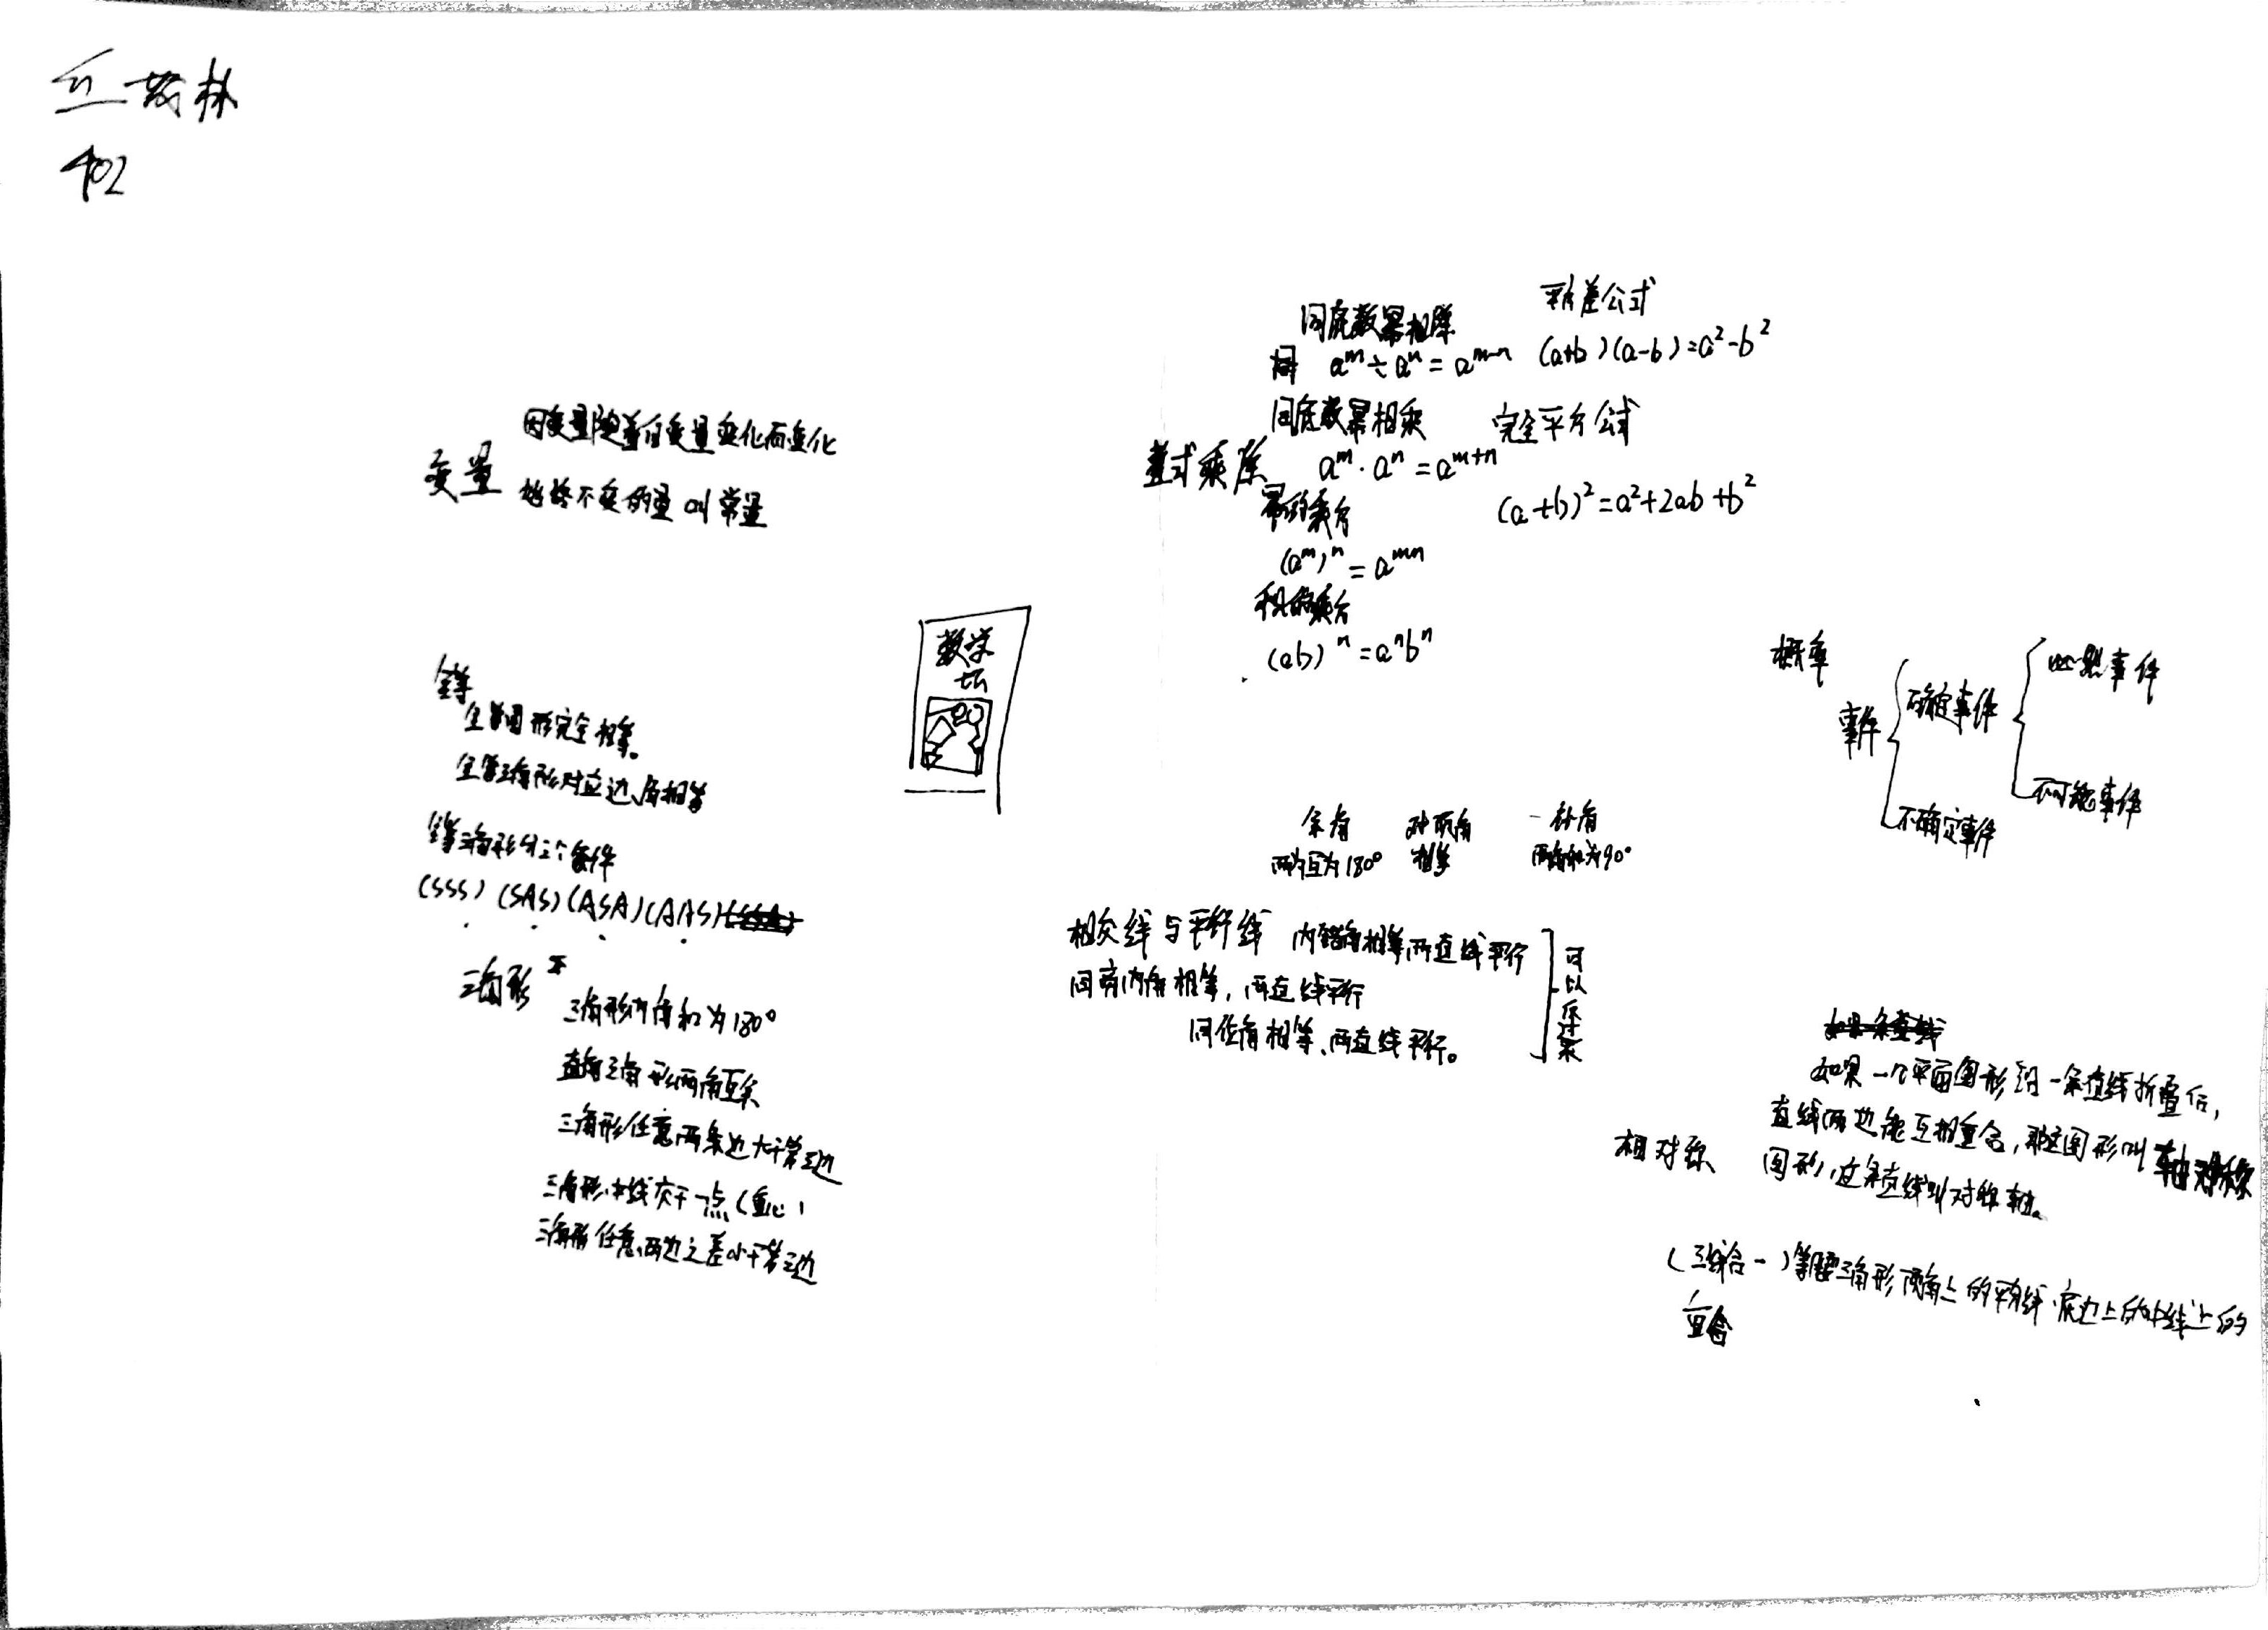 402
变量
因变量随着自变量变化而变化
始终不变的量叫常量
全等
全等图形完全相等。
全等三角形对应边、角相等
全等三角形 条件
(SSS) (SAS) (ASA) (AAS)
三角形
三角形内角和为180°
直角三角形两角互余
三角形任意两条边大于第三边
三角形中线交于一点(重心)
三角形任意两边之差小于第三边
数学
整式乘除
同底数幂相除
aᵐ÷aⁿ=aᵐ⁻ⁿ
同底数幂相乘
aᵐ·aⁿ=aᵐ⁺ⁿ
幂的乘方
(aᵐ)ⁿ=aᵐⁿ
积的乘方
(ab)ⁿ=aⁿbⁿ
平方差公式
(a+b)(a-b)=a²-b²
完全平方公式
(a+b)²=a²+2ab+b²
概率
事件
确定事件
必然事件
不可能事件
不确定事件
余角
两角互为180°
对顶角
相等
补角
两角和为90°
相交线与平行线
内错角相等,两直线平行
同旁内角相等,两直线平行
同位角相等、两直线平行。
可以反过来
相对称
如果一个平面图形沿一条直线折叠后,
直线两边能互相重合,那这图形叫轴对称
图形,这条直线叫对称轴。
(三线合一)等腰三角形 角上的平分线·底边上的中线上的
重合